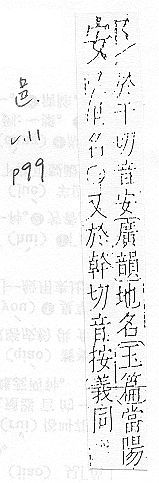 於干切音安廣韻地名玉篇當陽
里名又於幹切音按義同
邑
v.11
p99